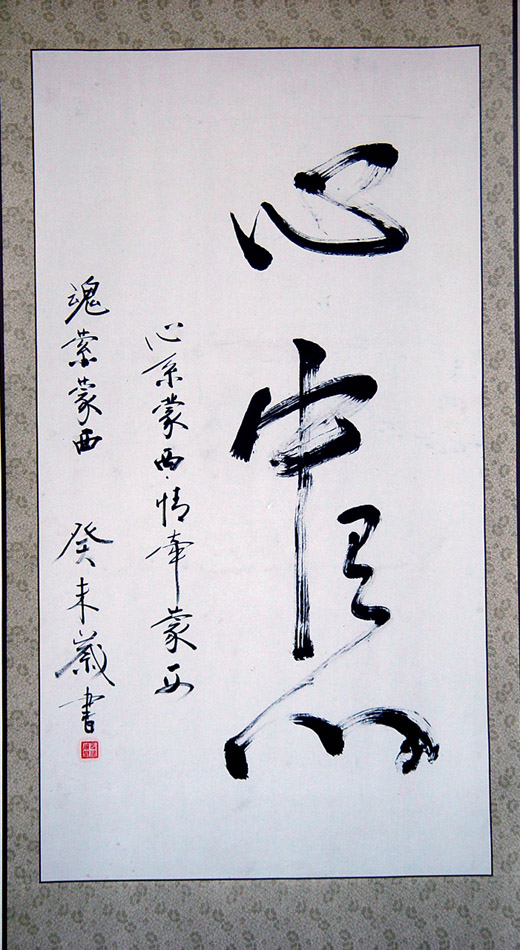 心中
心系蒙西情牵蒙西
魂萦蒙西 癸未歲書